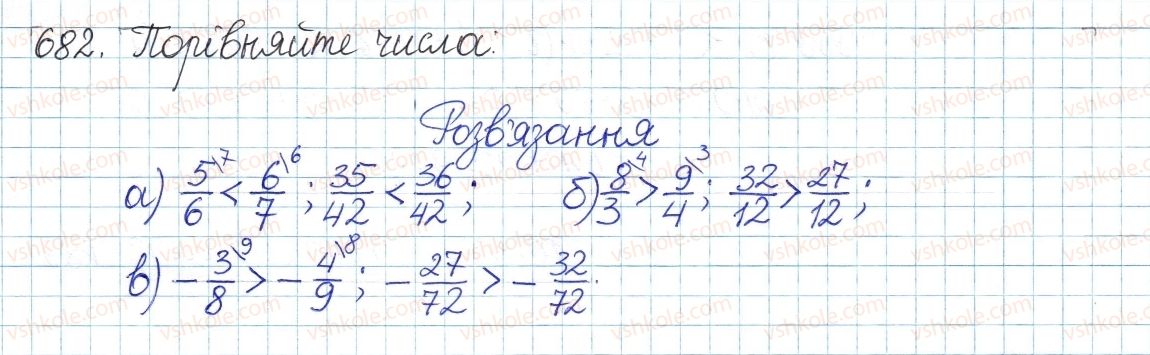 682. Порівняйте числа:
Розв'язання
а) 5/6\7 < 6/7\6 ; 35/42 < 36/42 ; б) 8/3\4 > 9/4\3 ; 32/12 > 27/12 ;
в) - 3/8\9 > - 4/9\8 ; - 27/72 > - 32/72 .